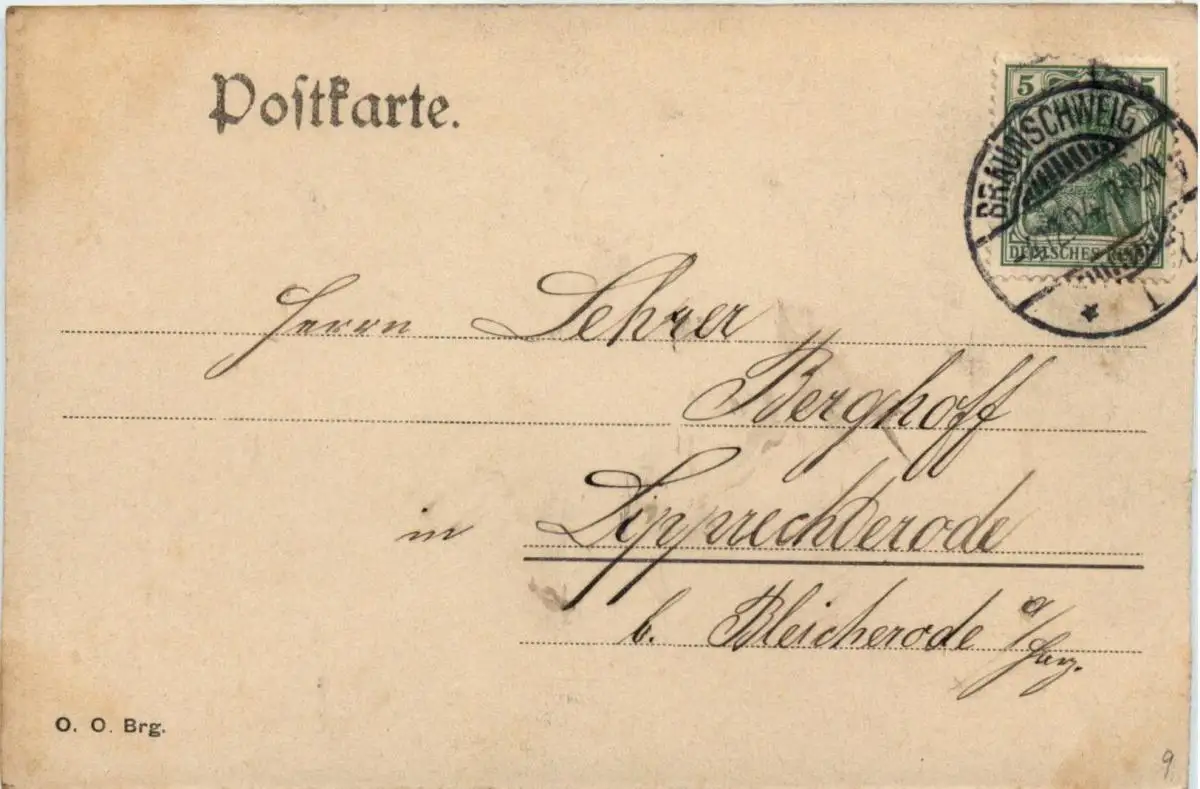 Postkarte.
5 5
BRAUNSCHWEIG
12.04
DEUTSCHES
1
Herrn Lehrer
Berghoff
in Lipprechterode
b. Bleicherode a/Harz.
O. O. Brg.
9